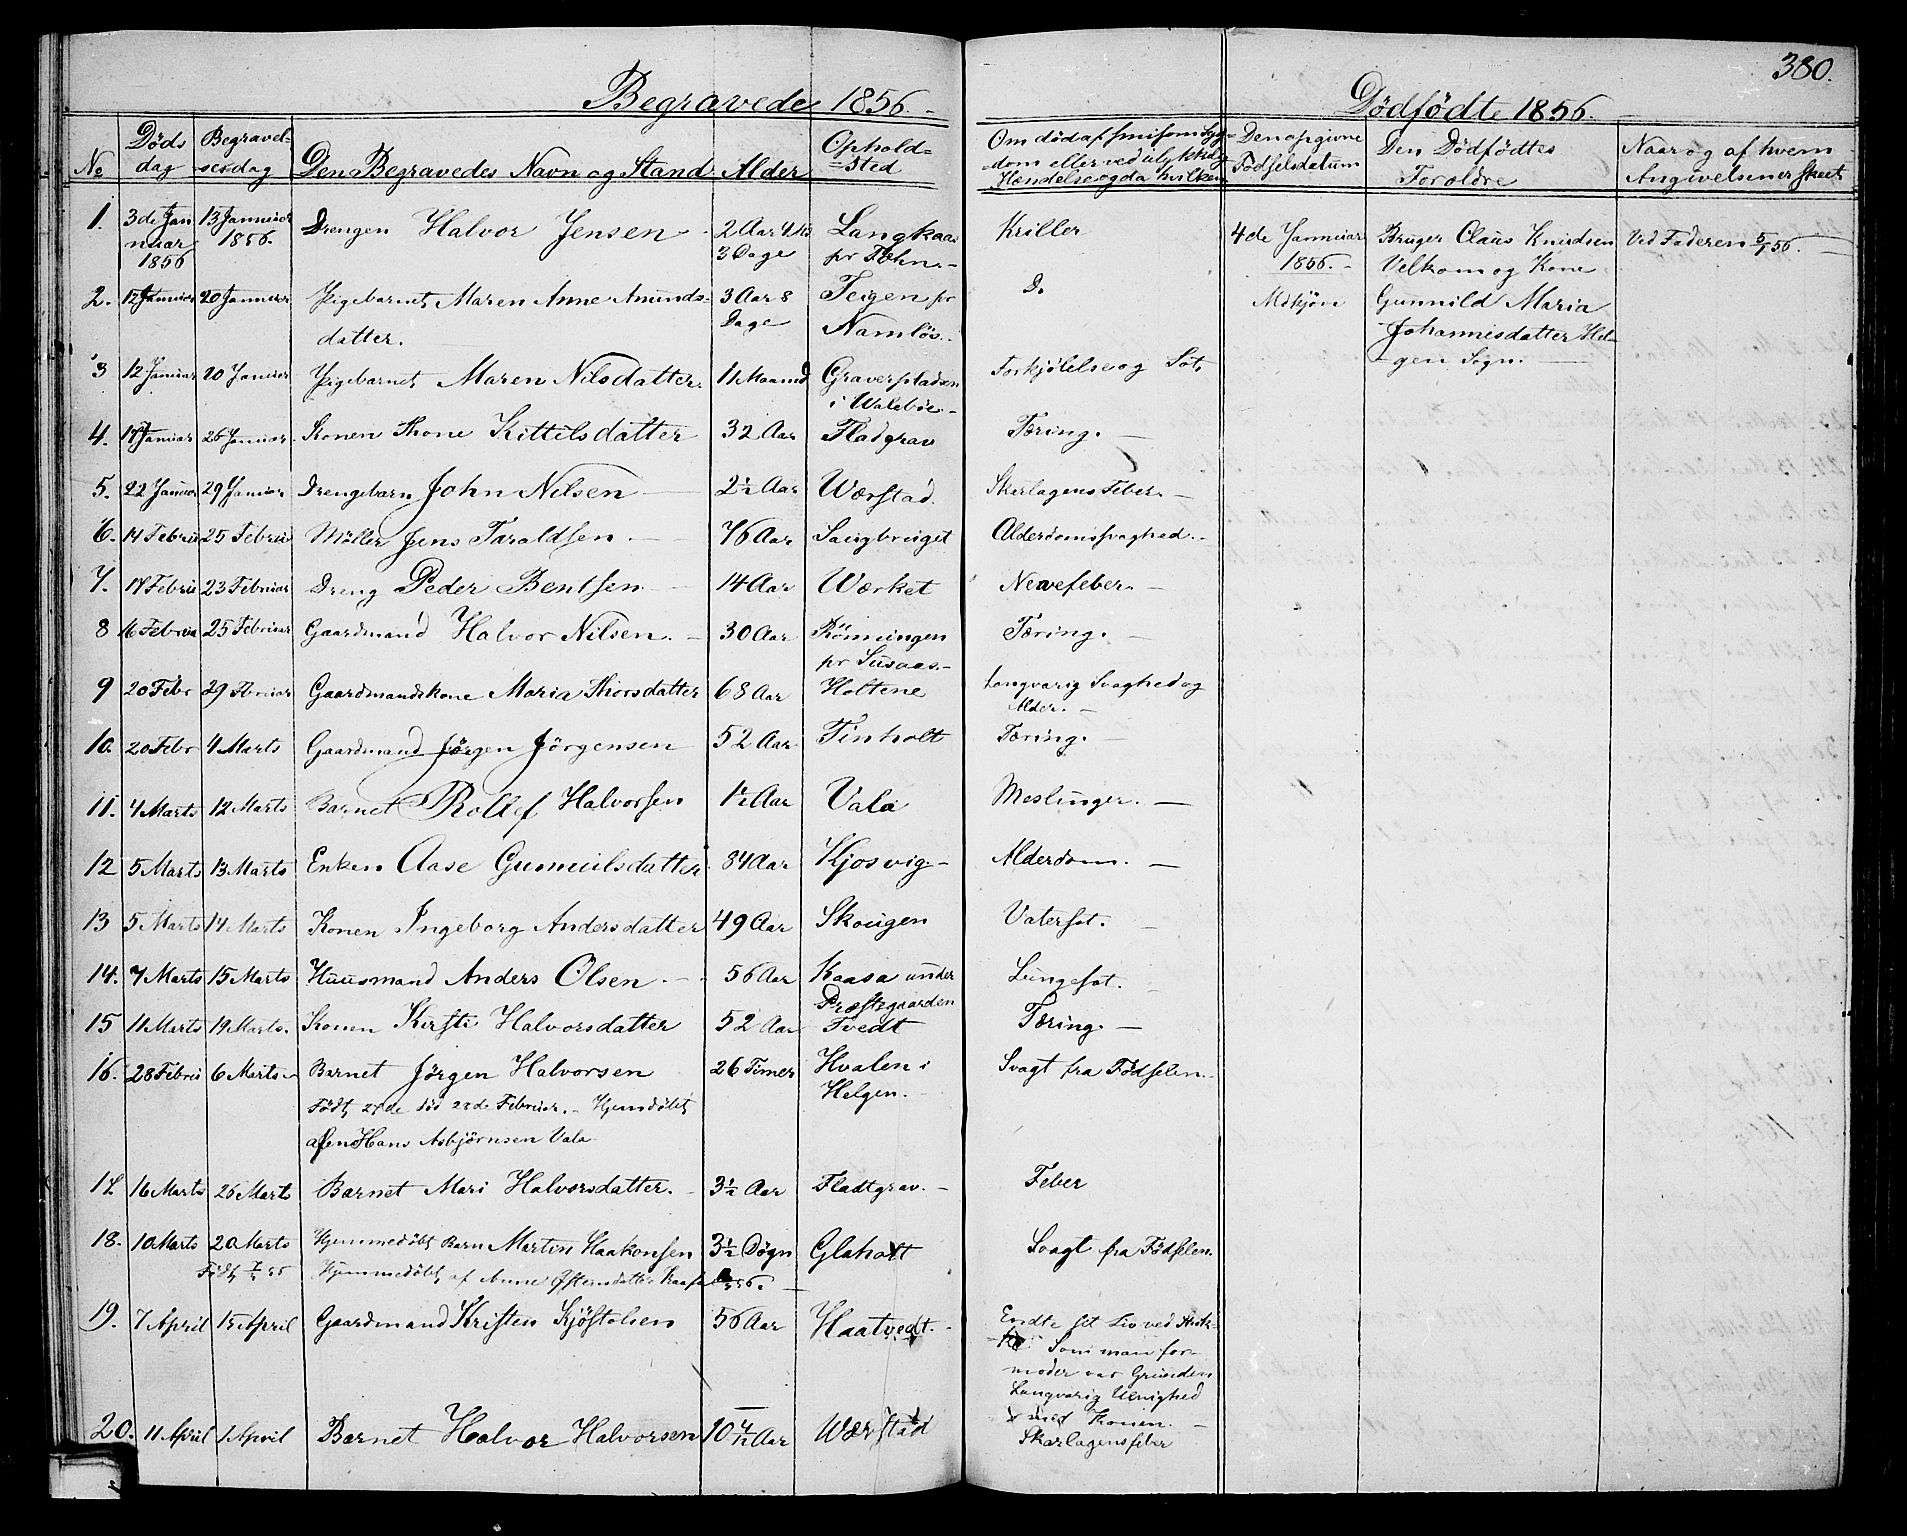 380.
Begravede 1856.
Dødfødte 1856.
No Døds dag Begravelsesdag Den Begravedes Navn og Stand Alder Ophold-sted
Om død af smitsom Syg-
dom eller ved ulykkelig
Hændelse og da hvilken
Den opgivne Fødselsdatum
Den Dødfødtes Forældre
Naar og af hvem Angivelsen er skeet
1. 3de Januar 1856 13 Januar 1856. Drengen Halvor Jensen 2 Aar 3 Dage Langkaas pr Kriller
2. 12 Januar 20 Januar Pigebarnet Maren Anne Amunds-
datter. 3 Aar 8 Dage Teigen pr Namløs. Do
3 12 Januar 20 Januar Pigebarnet Maren Nilsdatter. 11 Maaned Graverpladsen i Forkjølelse og
4. 17 Januar 26 Januar Konen Thone Kittilsdatter 32 Aar Fladgrav Tæring.
5. 22 Januar 29 Januar Drengebarn John Nilsen 2½ Aar Wærstad. Skarlagens Feber.
6. 14 Februar 25 Februar Møller Jens Taroldsen 76 Aar Saugbruget Alderdomssvaghed.
7. 17 Februar 23 Februar Dreng Peder Bentsen 14 Aar Wærket Nervefeber.
8 16 Februar 25 Februar Gaardmand Halvor Nilsen. 30 Aar Rønningen pr Susaas. Tæring.
9 20 Febr 29 Februar Gaardmandskone Maria Thorsdatter 68 Aar Holtene Langvarig Svaghed og Alder.
10. 20 Febr 4 Marts Gaardmand Jørgen Jørgensen 52 Aar Tinholt Tæring.
11. 4 Marts 12 Marts Barnet Rollef Halvorsen 1½ Aar Vala Meslinger.
12 5 Marts 13 Marts Enken Aase Gunnulsdatter 84 Aar Kjosvig Alderdom.
13 5 Marts 14 Marts Konen Ingeborg Andersdatter 49 Aar Skougen Vatersot.
14. 7 Marts 15 Marts Huusmand Anders Olsen. 56 Aar Kaasa under Præstegaarden Lungesot.
15 11 Marts 19 Marts. Konen Kirsti Halvorsdatter 52 Aar Tvedt Tæring.
16. 28 Febru 6 Marts Barnet Jørgen Halvorsen 26 Timer Hvalen i Helgen. Svagt fra Fødselen.
Født 27de død 28de Februar. Hjemdøbt
af en Hans Asbjørnsen Vala
17 16 Marts 26 Marts Barnet Mari Halvorsdatter. 3½ Aar Fladtgrav. Feber
18. 10 Marts 20 Marts Hjemmedøbt Barn Martin Haakonsen 3½ Døgn Glaholt Svagt fra Fødselen.
Født Hjemmedøbt af Anne
19. 7 April 15 April Gaardmand Kristen Kjøstolsen 56 Aar Haatvedt.
Endte sit Liv ved
Som man for-
moder var Grunden
Langvarig Uenighed
med Konen.
20. 11 April 1 April Barnet Halvor Halvorsen 10 4/12 Aar Wærstad Skarlagensfeber
4de Januar 1856. Bruger Claus Knudsen Ved Faderen 5/1 56.
Velkom og Kone
Gunnild Maria
Johannisdatter Hel-
gen Sogn.